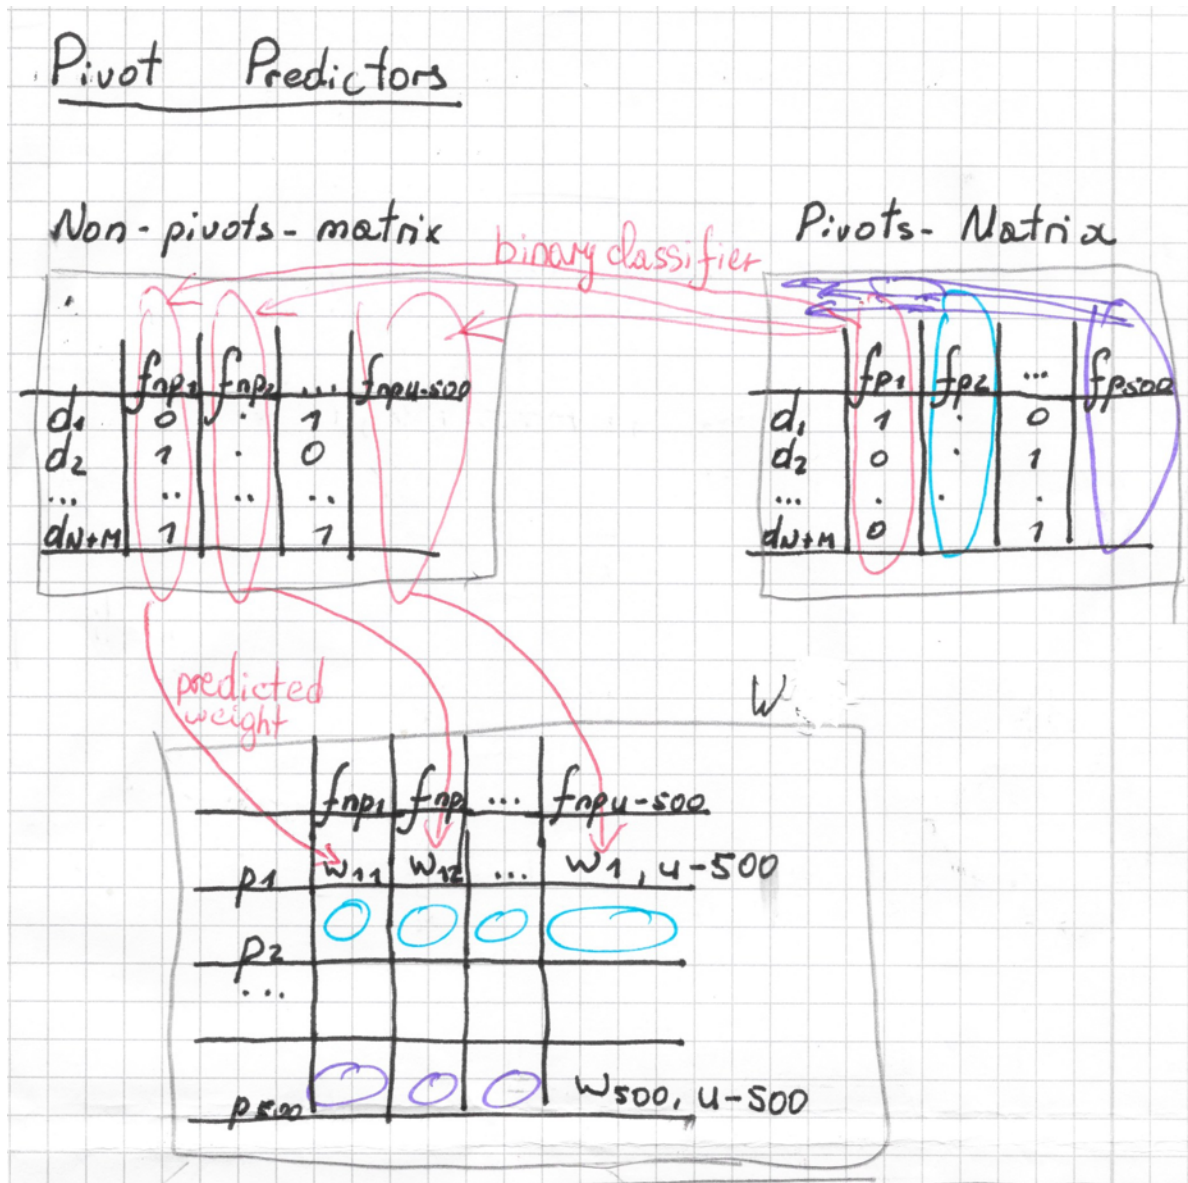 Pivot Predictors
Non-pivots-matrix
binary classifier
Pivots-Matrix
fnp1 fnp2 ... fnpu-500
d1 0 . 1
d2 1 . 0
... .. .. ..
dN+M 1 1
fp1 fp2 ... fp500
d1 1 . 0
d2 0 . 1
... . . .
dN+M 0 1
predicted
weight
W
fnp1 fnp ... fnpu-500
p1 w11 w12 ... w1, u-500
p2
...
p500 w500, u-500